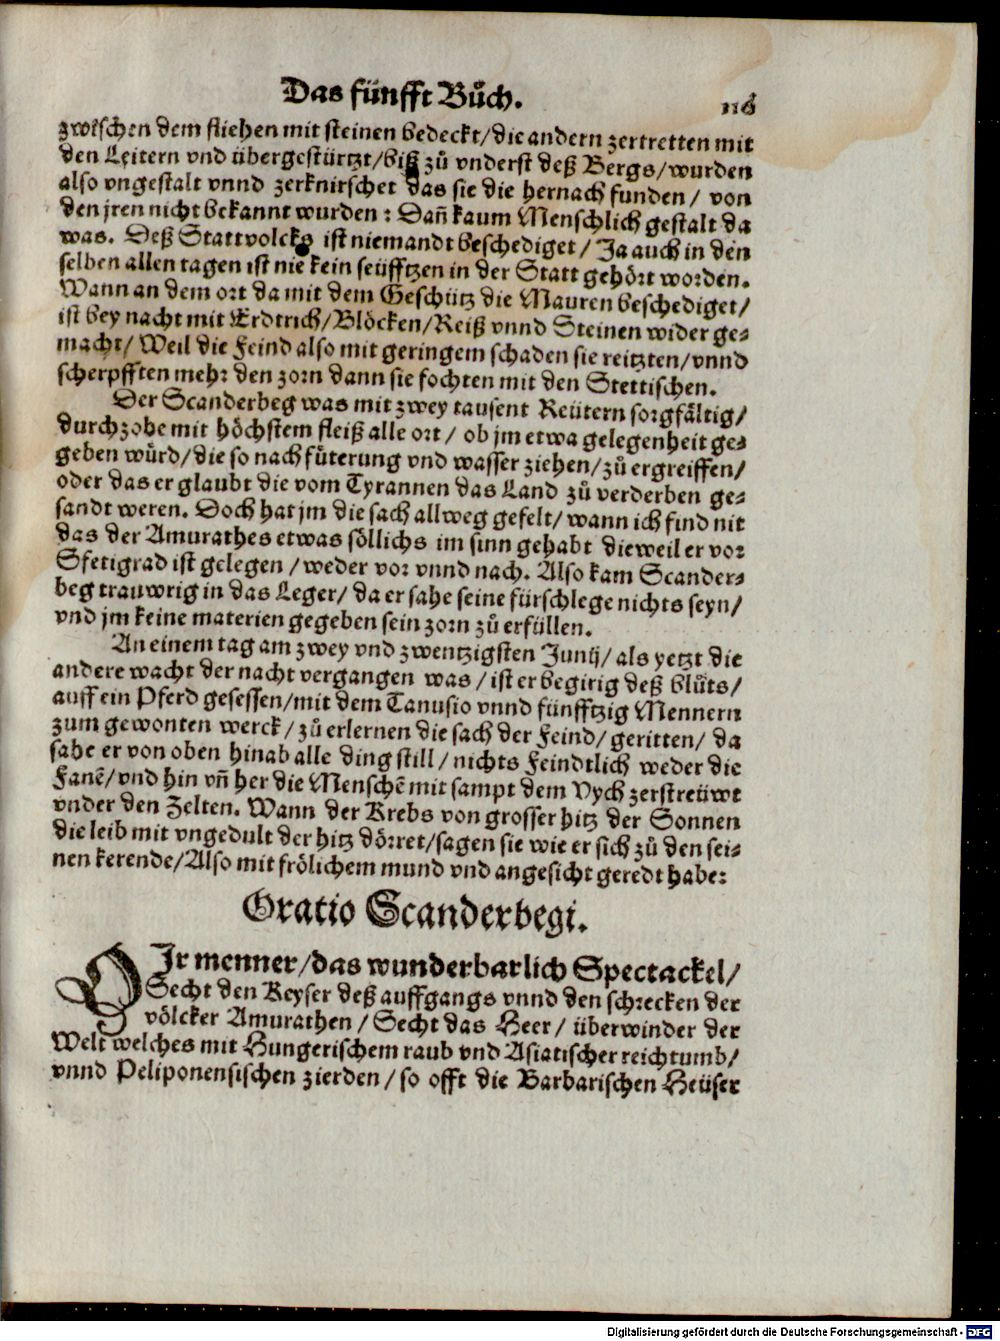 Das fünfft Bůch.
116
zwischen dem fliehen mit steinen bedeckt/die andern zertretten mit
den Leitern vnd übergestürtzt/biß zů vnderst deß Bergs/wurden
also vngestalt vnnd zerknirschet das sie die hernach funden/ von
den jren nicht bekannt wurden: Dañ kaum Menschlich gestalt da
was. Deß Stattvolcks ist niemandt beschediget/ Ja auch in den
selben allen tagen ist nie kein seüfftzen in der Statt gehört worden.
Wann an dem ort da mit dem Geschütz die Mauren beschediget/
ist bey nacht mit Erdtrich/Blöcken/Reiß vnnd Steinen wider ge-
macht/ Weil die Feind also mit geringem schaden sie reitzten/vnnd
scherpfften mehr den zorn dann sie fochten mit den Stettischen.
Der Scanderbeg was mit zwey tausent Reütern sorgfältig/
durchzohe mit höchstem fleiß alle ort/ ob jm etwa gelegenheit ge-
geben würd/die so nach fůterung vnd wasser ziehen/zů ergreiffen/
oder das er glaubt die vom Tyrannen das Land zů verderben ge-
sandt weren. Doch hat jm die sach allweg gefelt/ wann ich find nit
das der Amurathes etwas söllichs im sinn gehabt dieweil er vor
Sfetigrad ist gelegen/weder vor vnnd nach. Also kam Scander-
beg trauwrig in das Leger/ da er sahe seine fürschlege nichts seyn/
vnd jm keine materien gegeben sein zorn zů erfüllen.
An einem tag am zwey vnd zwentzigsten Junij/ als yetzt die
andere wacht der nacht vergangen was/ist er begirig deß blůts/
auff ein Pferd gesessen/mit dem Tanusio vnnd fünfftzig Mennern
zum gewonten werck/ zů erlernen die sach der Feind/ geritten/ da
sahe er von oben hinab alle ding still/ nichts Feindtlich weder die
Fanē/vnd hin vñ her die Menschē mit sampt dem Vych zerstreüwt
vnder den Zelten. Wann der Krebs von grosser hitz der Sonnen
die leib mit vngedult der hitz dörret/sagen sie wie er sich zů den sei-
nen kerende/Also mit frölichem mund vnd angesicht geredt habe:
Oratio Scanderbegi.
OIr menner/das wunderbarlich Spectackel/
Secht den Keyser deß auffgangs vnnd den schrecken der
völcker Amurathen/ Secht das Heer/ überwinder der
Welt welches mit Hungerischem raub vnd Asiatischer reichtumb/
vnnd Peliponensischen zierden/ so offt die Barbarischen Heüser
Digitalisierung gefördert durch die Deutsche Forschungsgemeinschaft - DFG